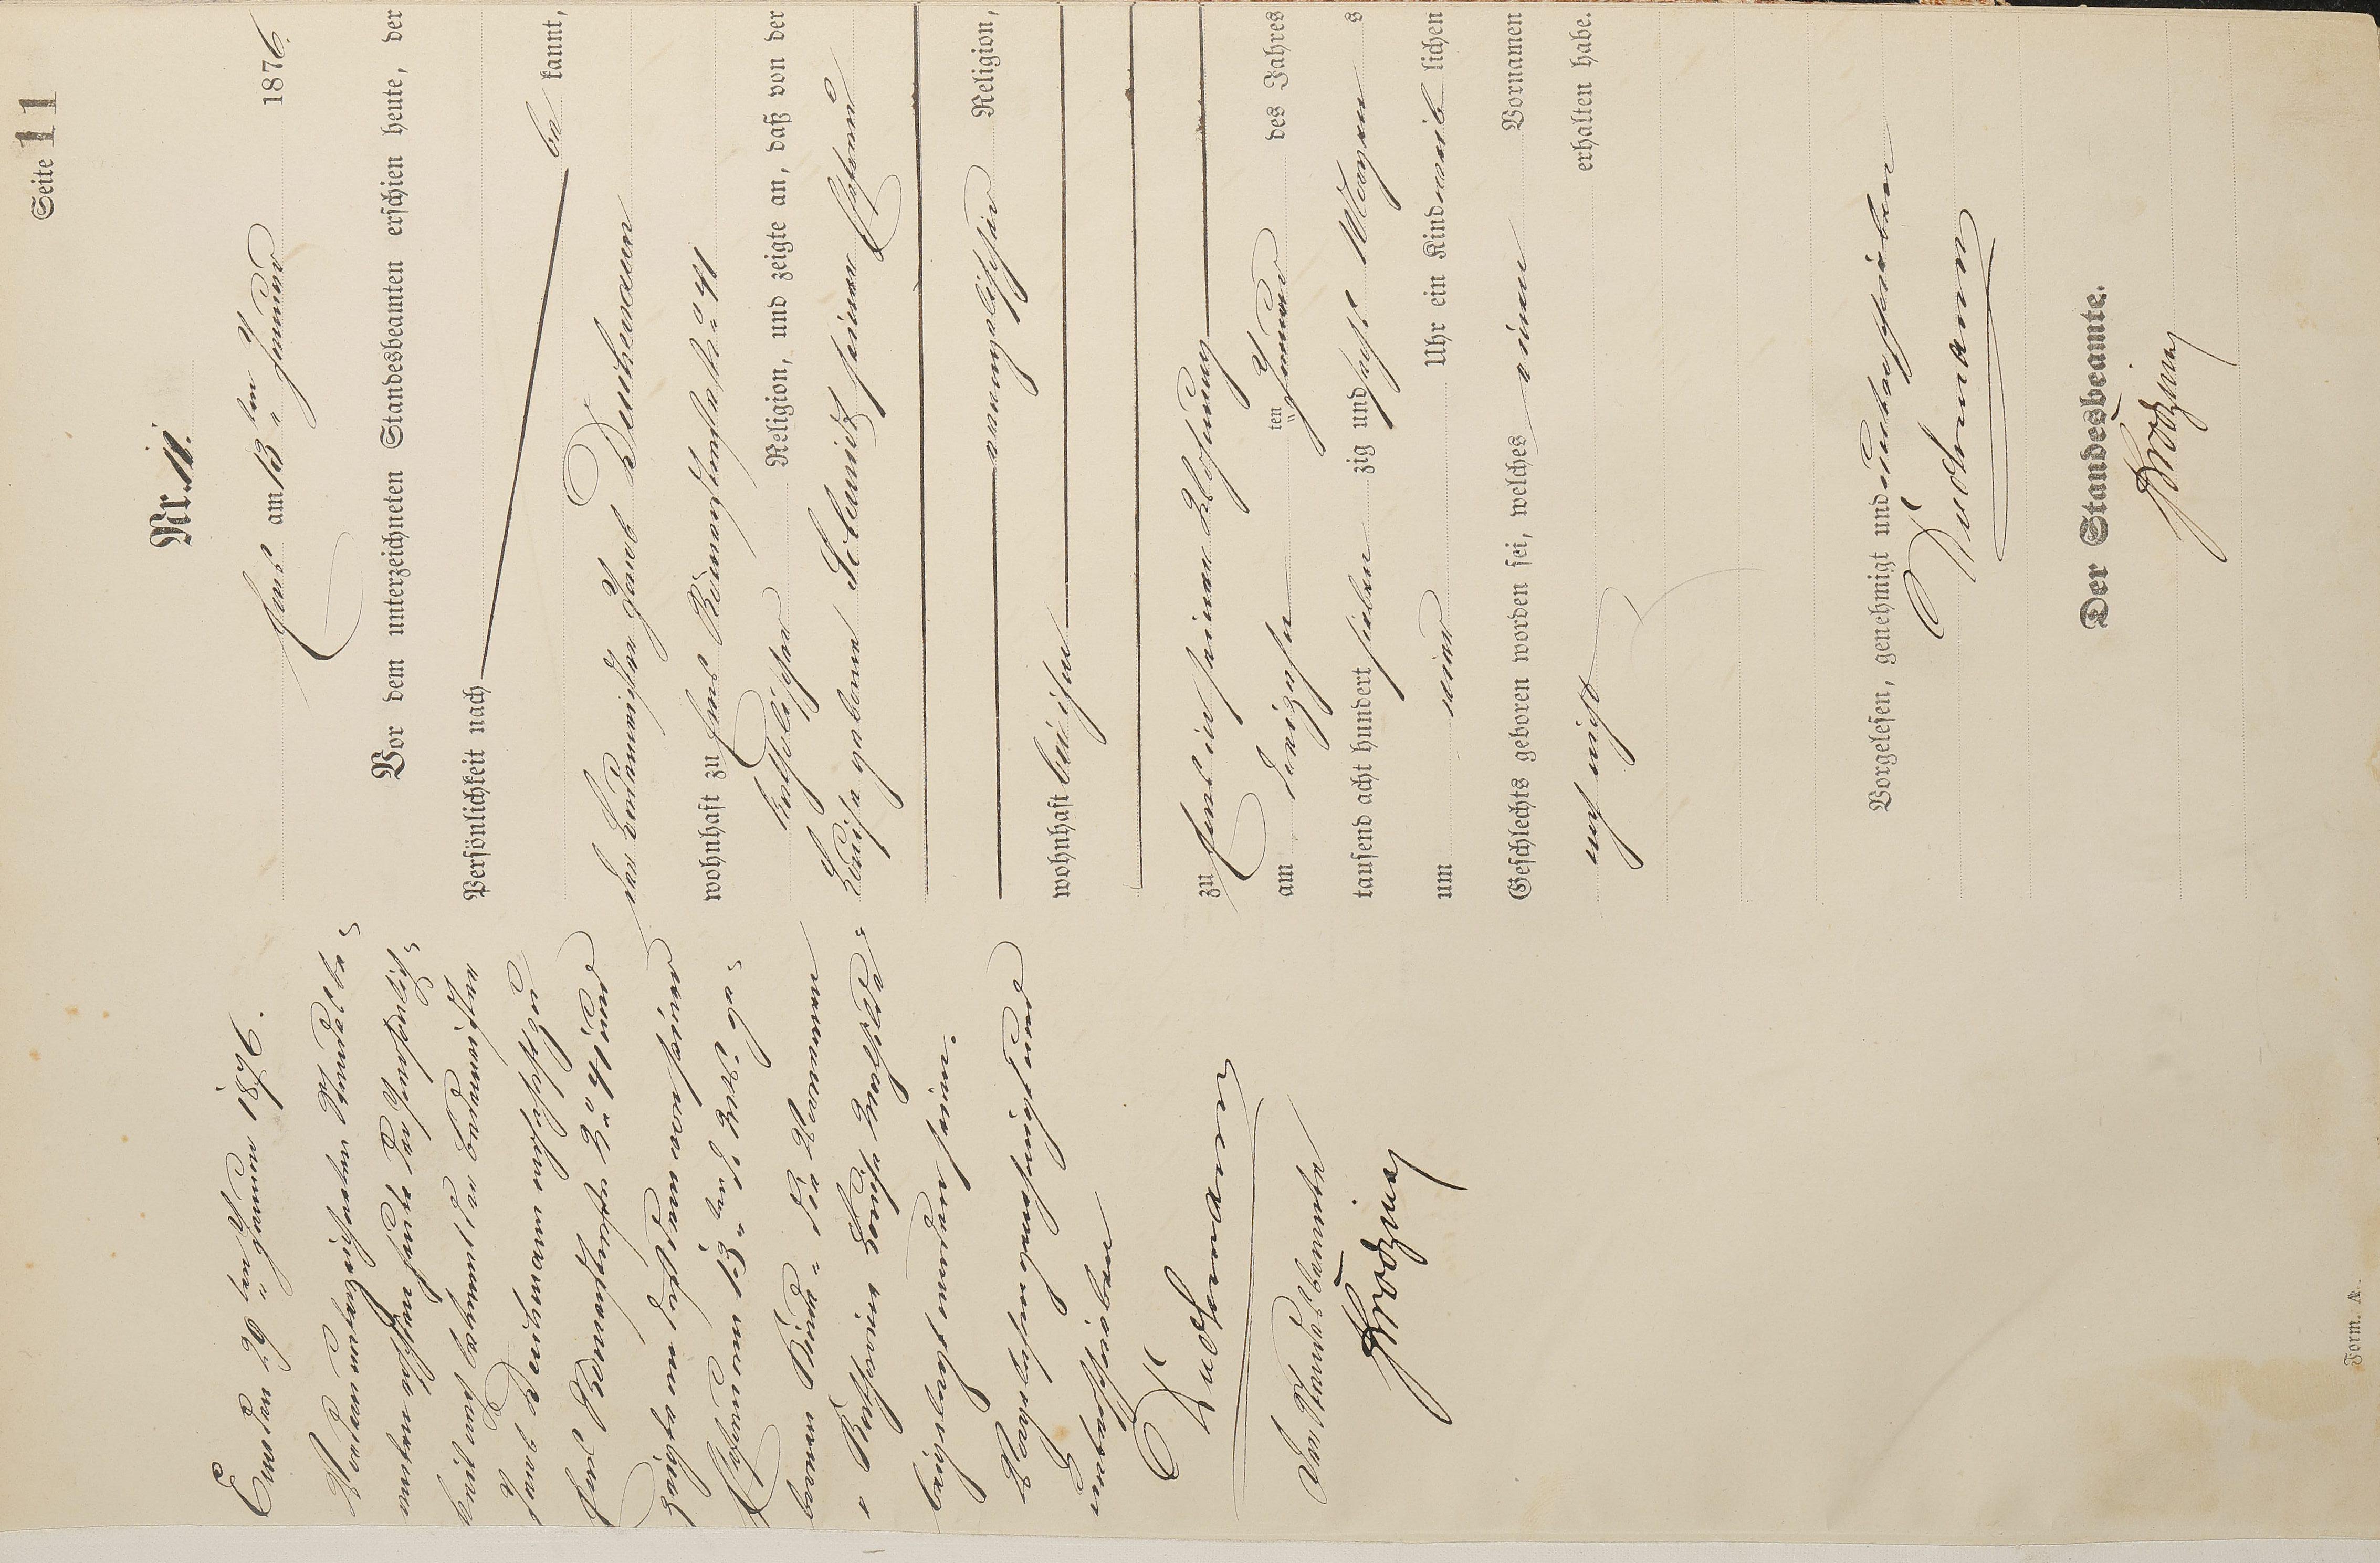 Seite 11
Nr. 11.
Ems am 13 ten Januar 1876.
Vor dem unterzeichneten Standesbeamten erschien heute, der
Persönlichkeit nach be kannt,
der Bademeister Jacob Deuhmann
wohnhaft zu Ems Römerstraße No 41
katholischer Religion, und zeigte an, daß von der
Louise geborene Schmidt seiner Ehefrau
evangelischer Religion,
wohnhaft bei ihm
zu Ems in seiner Wohnung
am dreizehn ten Januar des Jahres
tausend acht hundert sieben zig und sechs Morgens
um neun Uhr ein Kind weib lichen
Geschlechts geboren worden sei, welches einen Vornamen
noch nicht erhalten habe.
Vorgelesen, genehmigt und unterschrieben
Der Standesbeamte.
Ems den 29 ten Januar 1876.
Vor dem unterzeichneten Standesbe-
amten erschien heute der Persönlich-
keit nach bekannt der Bademeister
Jacob Deuhmann wohnhaft zu
Ems Römerstraße No 41 und
zeigte an daß dem von seiner
Ehefrau am 13 ten d. Mts. ge-
borenen Kinde die Vornamen
Katharine Louise Mathilde
beigelegt worden seien.
Vorgelesen genehmigt und
unterschrieben
Der Standesbeamte
Form. A.